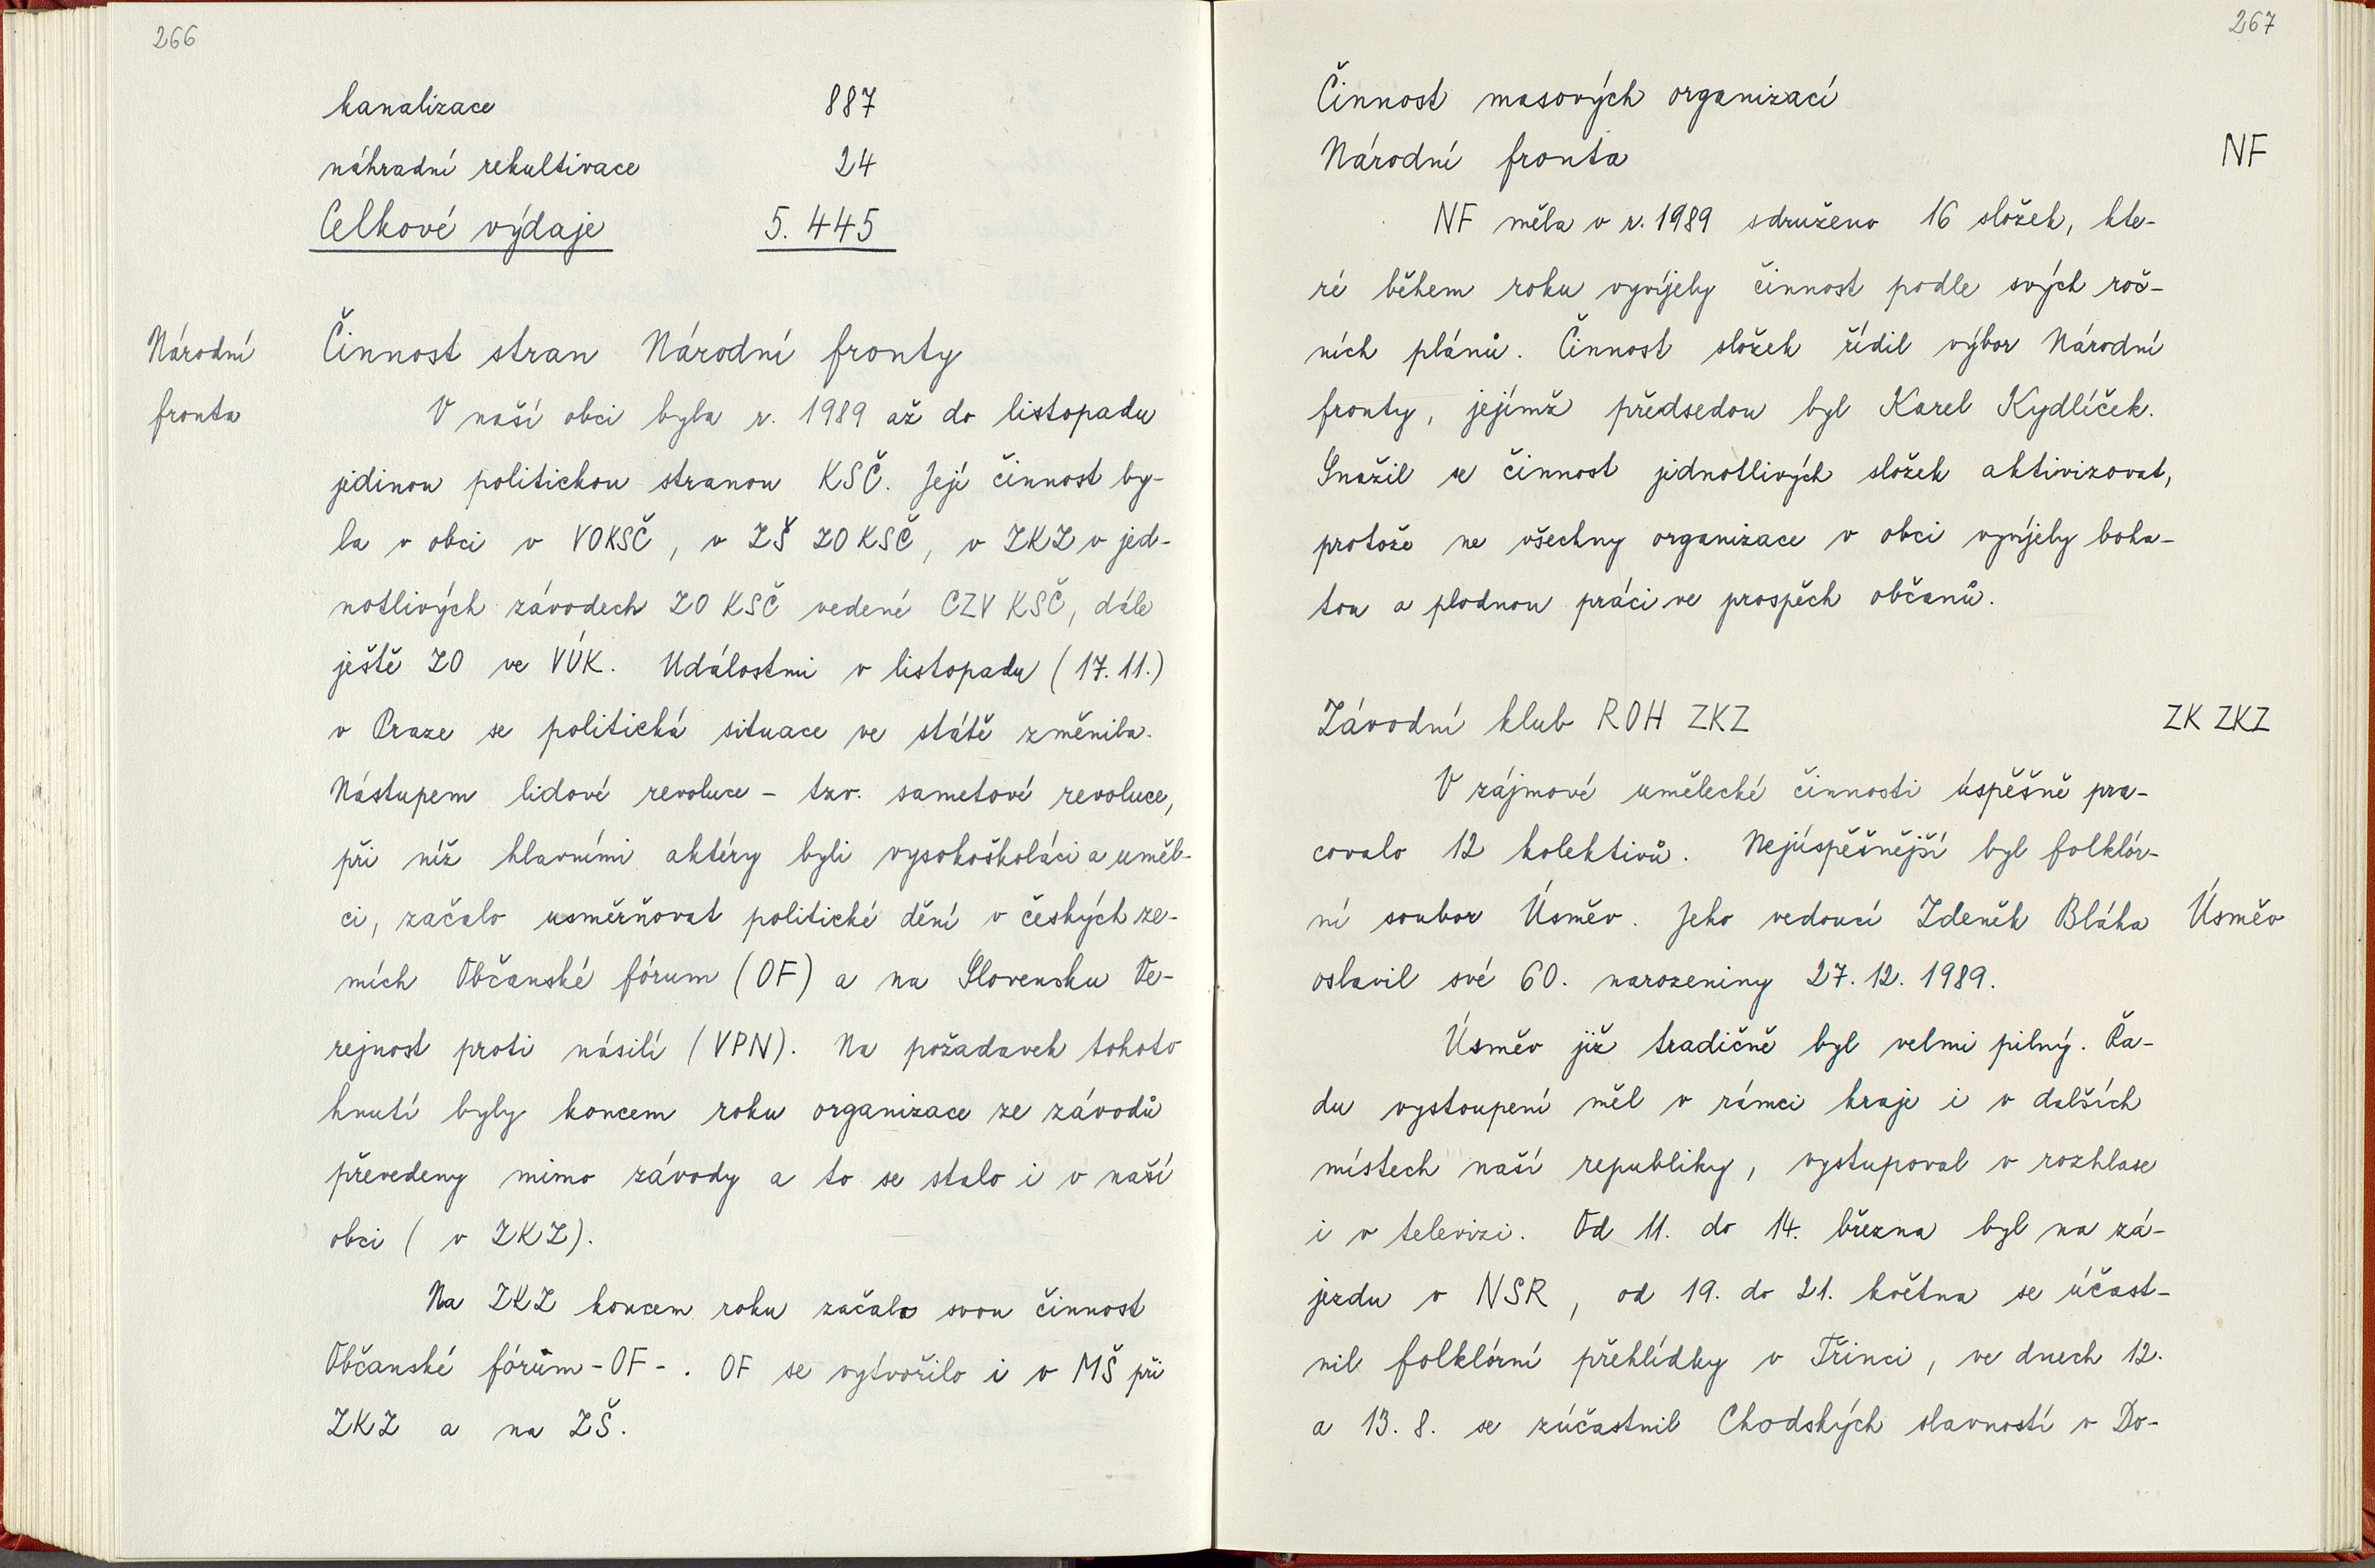 266
kanalizace 887
náhradní rekultivace 24
Celkové výdaje 5.445
Národní Činnost stran Národní fronty
fronta V naší obci byla r. 1989 až do listopadu
jedinou politickou stranou KSČ. Její činnost by-
la v obci v VOKSČ, v ZŠ ZO KSČ, v ZKZ v jed-
notlivých závodech ZO KSČ vedené CZV KSČ, dále
ještě ZO ve VÚK. Událostmi v listopadu (17.11.)
v Praze se politická situace ve státě změnila.
Nástupem lidové revoluce - tzv. sametové revoluce,
při níž hlavními aktéry byli vysokoškoláci a uměl-
ci, začalo usměrňovat politické dění v českých ze-
mích Občanské fórum (OF) a na Slovensku Ve-
rejnost proti násilí (VPN). Na požadavek tohoto
hnutí byly koncem roku organizace ze závodů
převedeny mimo závody a to se stalo i v naší
obci ( v ZKZ).
Na ZKZ koncem roku začalo svou činnost
Občanské fórum - OF - . OF se vytvořilo i v MŠ při
ZKZ a na ZŠ.
267
Činnost masových organizací
Národní fronta NF
NF měla v r. 1989 sdruženo 16 složek, kte-
ré během roku vyvíjely činnost podle svých roč-
ních plánů. Činnost složek řídil výbor Národní
fronty, jejímž předsedou byl Karel Kydlíček.
Snažil se činnost jednotlivých složek aktivizovat,
protože ne všechny organizace v obci vyvíjely boha-
tou a plodnou práci ve prospěch občanů.
Závodní klub ROH ZKZ ZK ZKZ
V zájmové umělecké činnosti úspěšně pra-
covalo 12 kolektivů. Nejúspěšnější byl folklór-
ní soubor Úsměv. Jeho vedoucí Zdeněk Bláha Úsměv
oslavil své 60. narozeniny 27.12.1989.
Úsměv již tradičně byl velmi pilný. Řa-
du vystoupení měl v rámci kraje i v dalších
místech naší republiky, vystupoval v rozhlase
i v televizi. Od 11. do 14. března byl na zá-
jezdu v NSR, od 19. do 21. května se účast-
nil folklórní přehlídky v Třinci, ve dnech 12.
a 13.8. se zúčastnil Chodských slavností v Do-